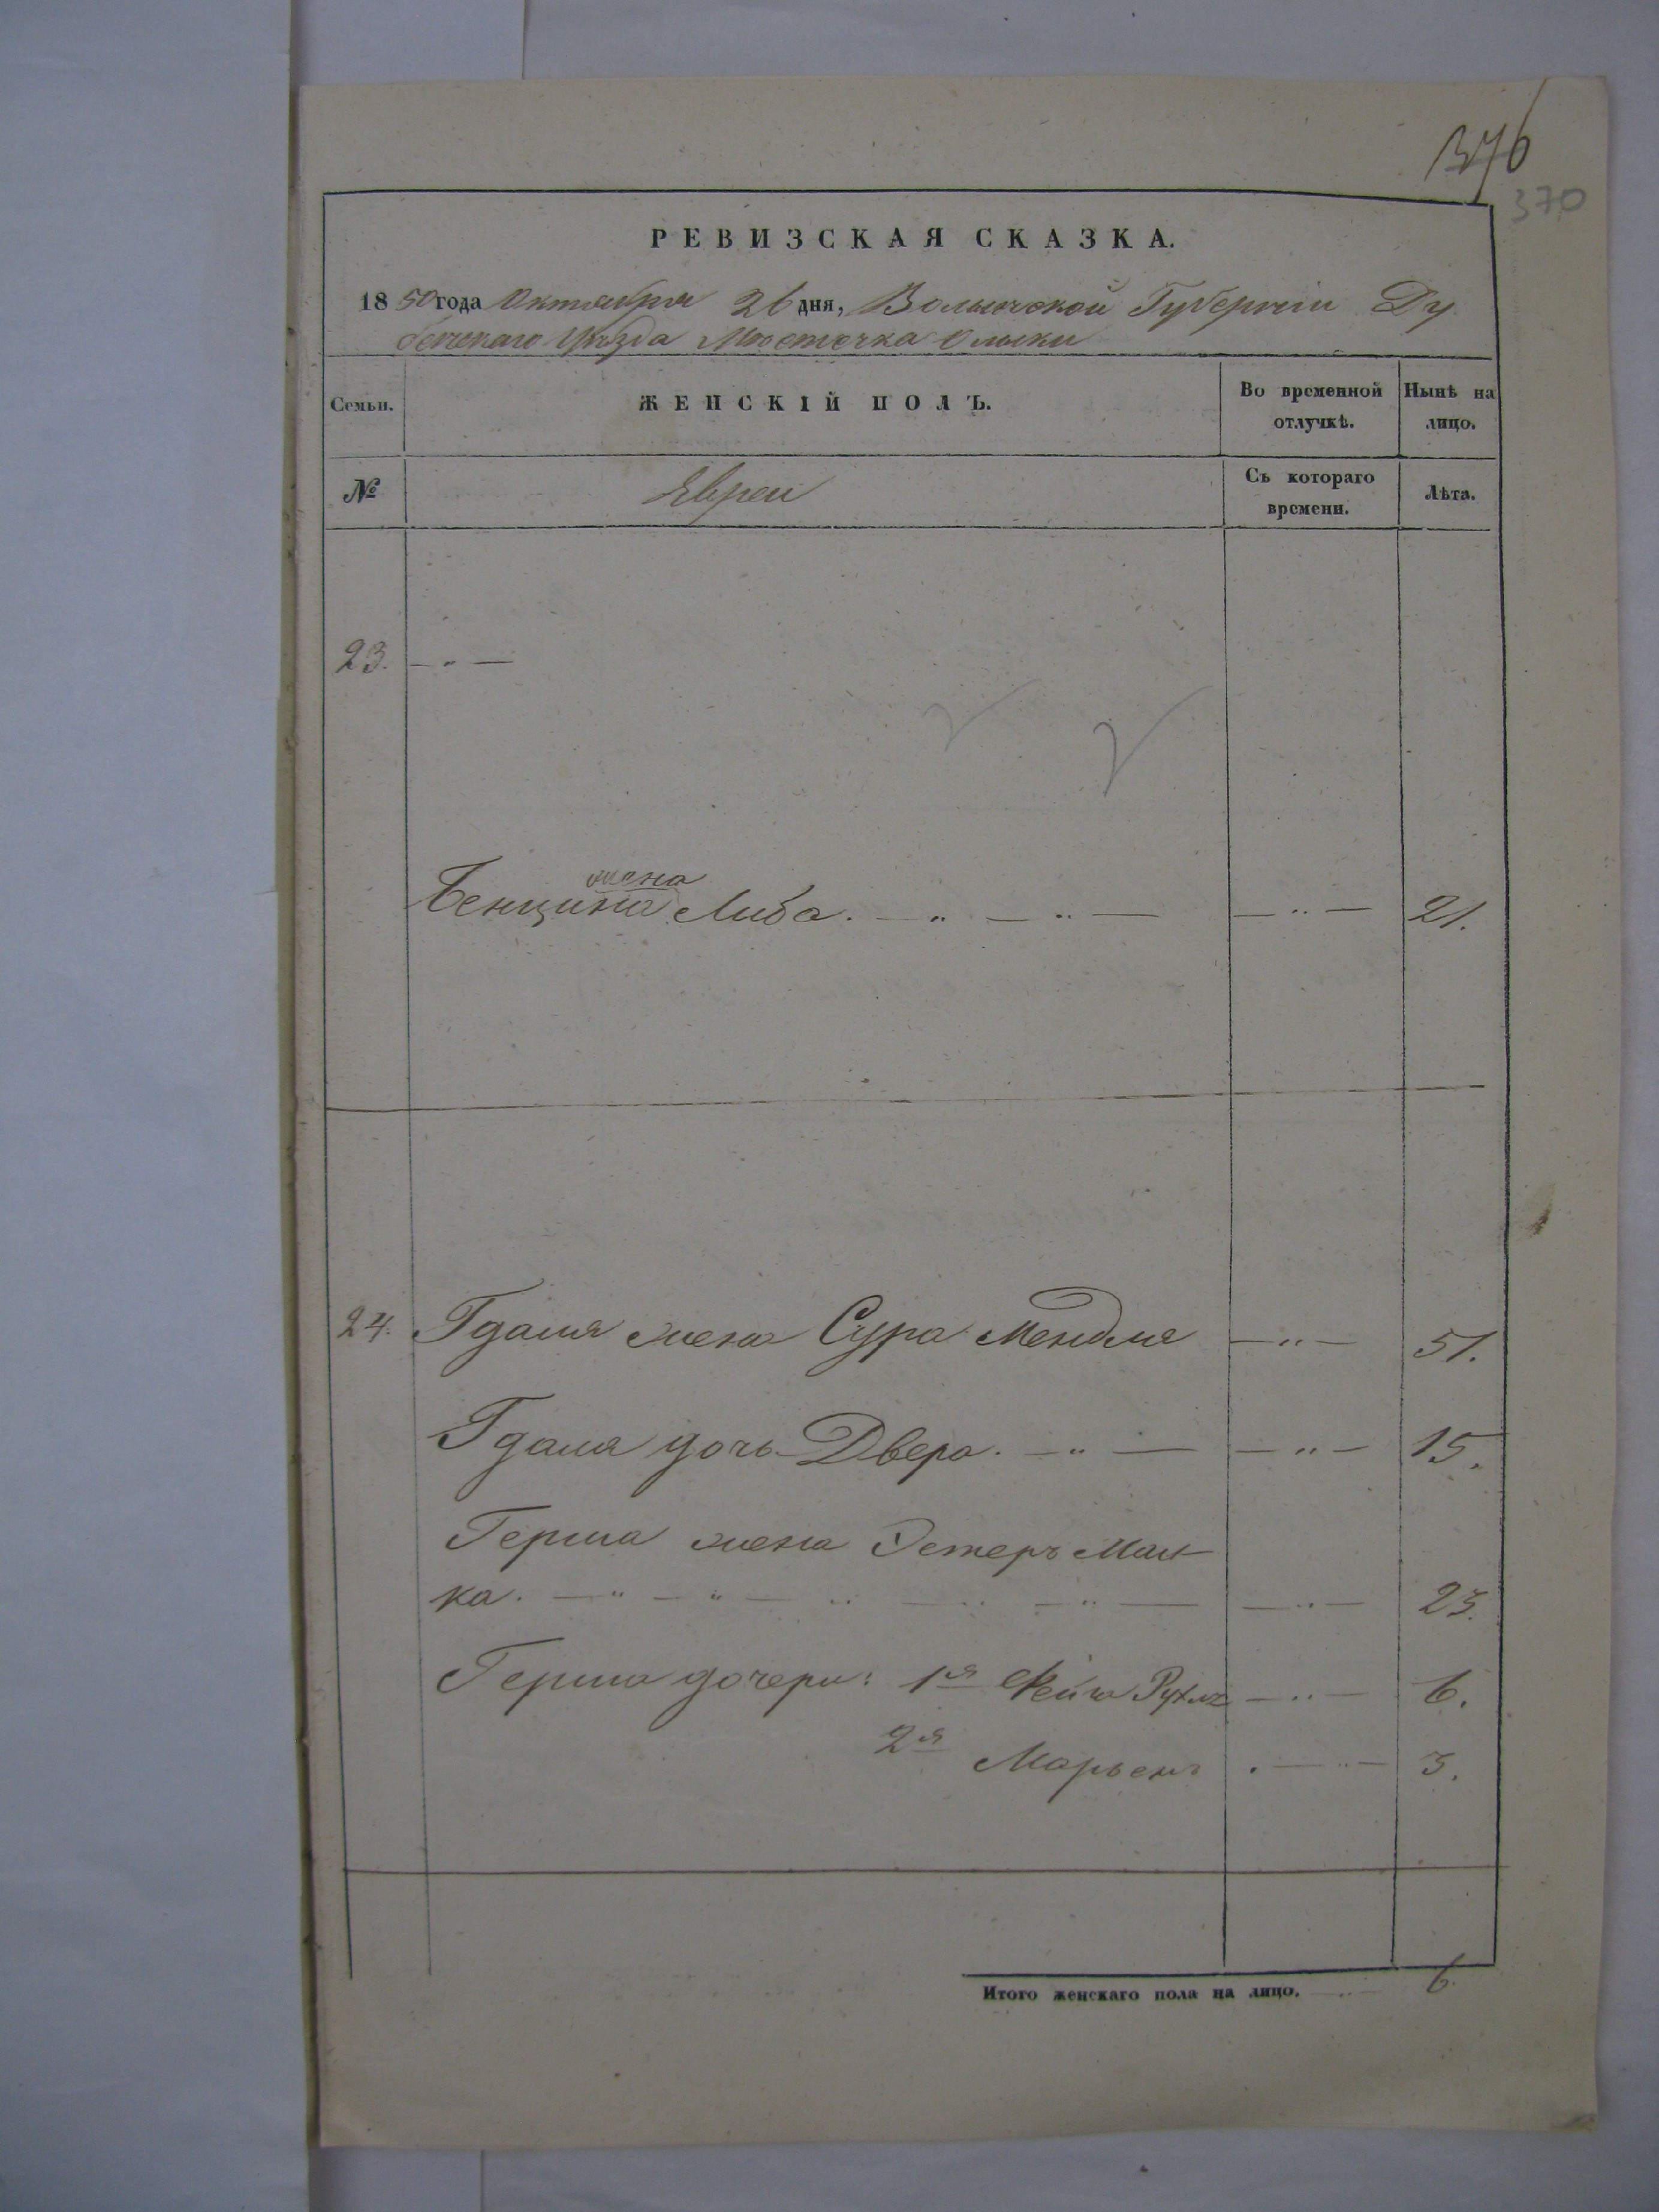 376
370
РЕВИЗСКАЯ СКАЗКА.
1850 года Октября 26 дня, Волынской Губерніи Ду
бенскаго Уѣзда Мѣстечка Олыки
Семьи.
ЖЕНСКІЙ ПОЛЪ.
Во временной отлучкѣ.
Нынѣ на лицо.
№
Евреи
Съ котораго времени.
Лѣта.
23. — " —
жена
Бенциона Либа. — " — " — — " — 21.
24. Гдаля жена Сура Мендля — " — 51.
Гдаля дочь Двера. — " — — " — 15.
Герша жена Эстеръ Мал
ка. — " — " — " — " — " — — " — 23.
Герша дочери: 1я Фейга Рухля — " — 6.
2я Марьемъ . — " — 3.
Итого женскаго пола на лицо. — " — 6.